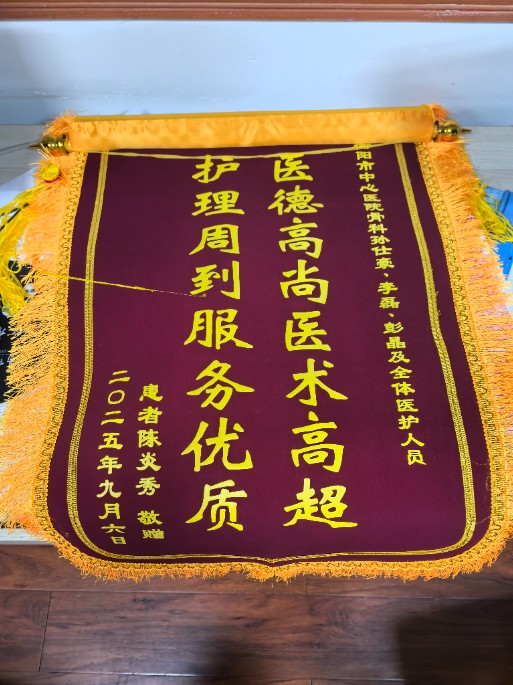 阳市中心医院骨科孙仕豪、李磊、彭晶及全体医护人员
医德高尚医术高超
护理周到服务优质
患者陈炎秀 敬赠
二〇二五年九月六日